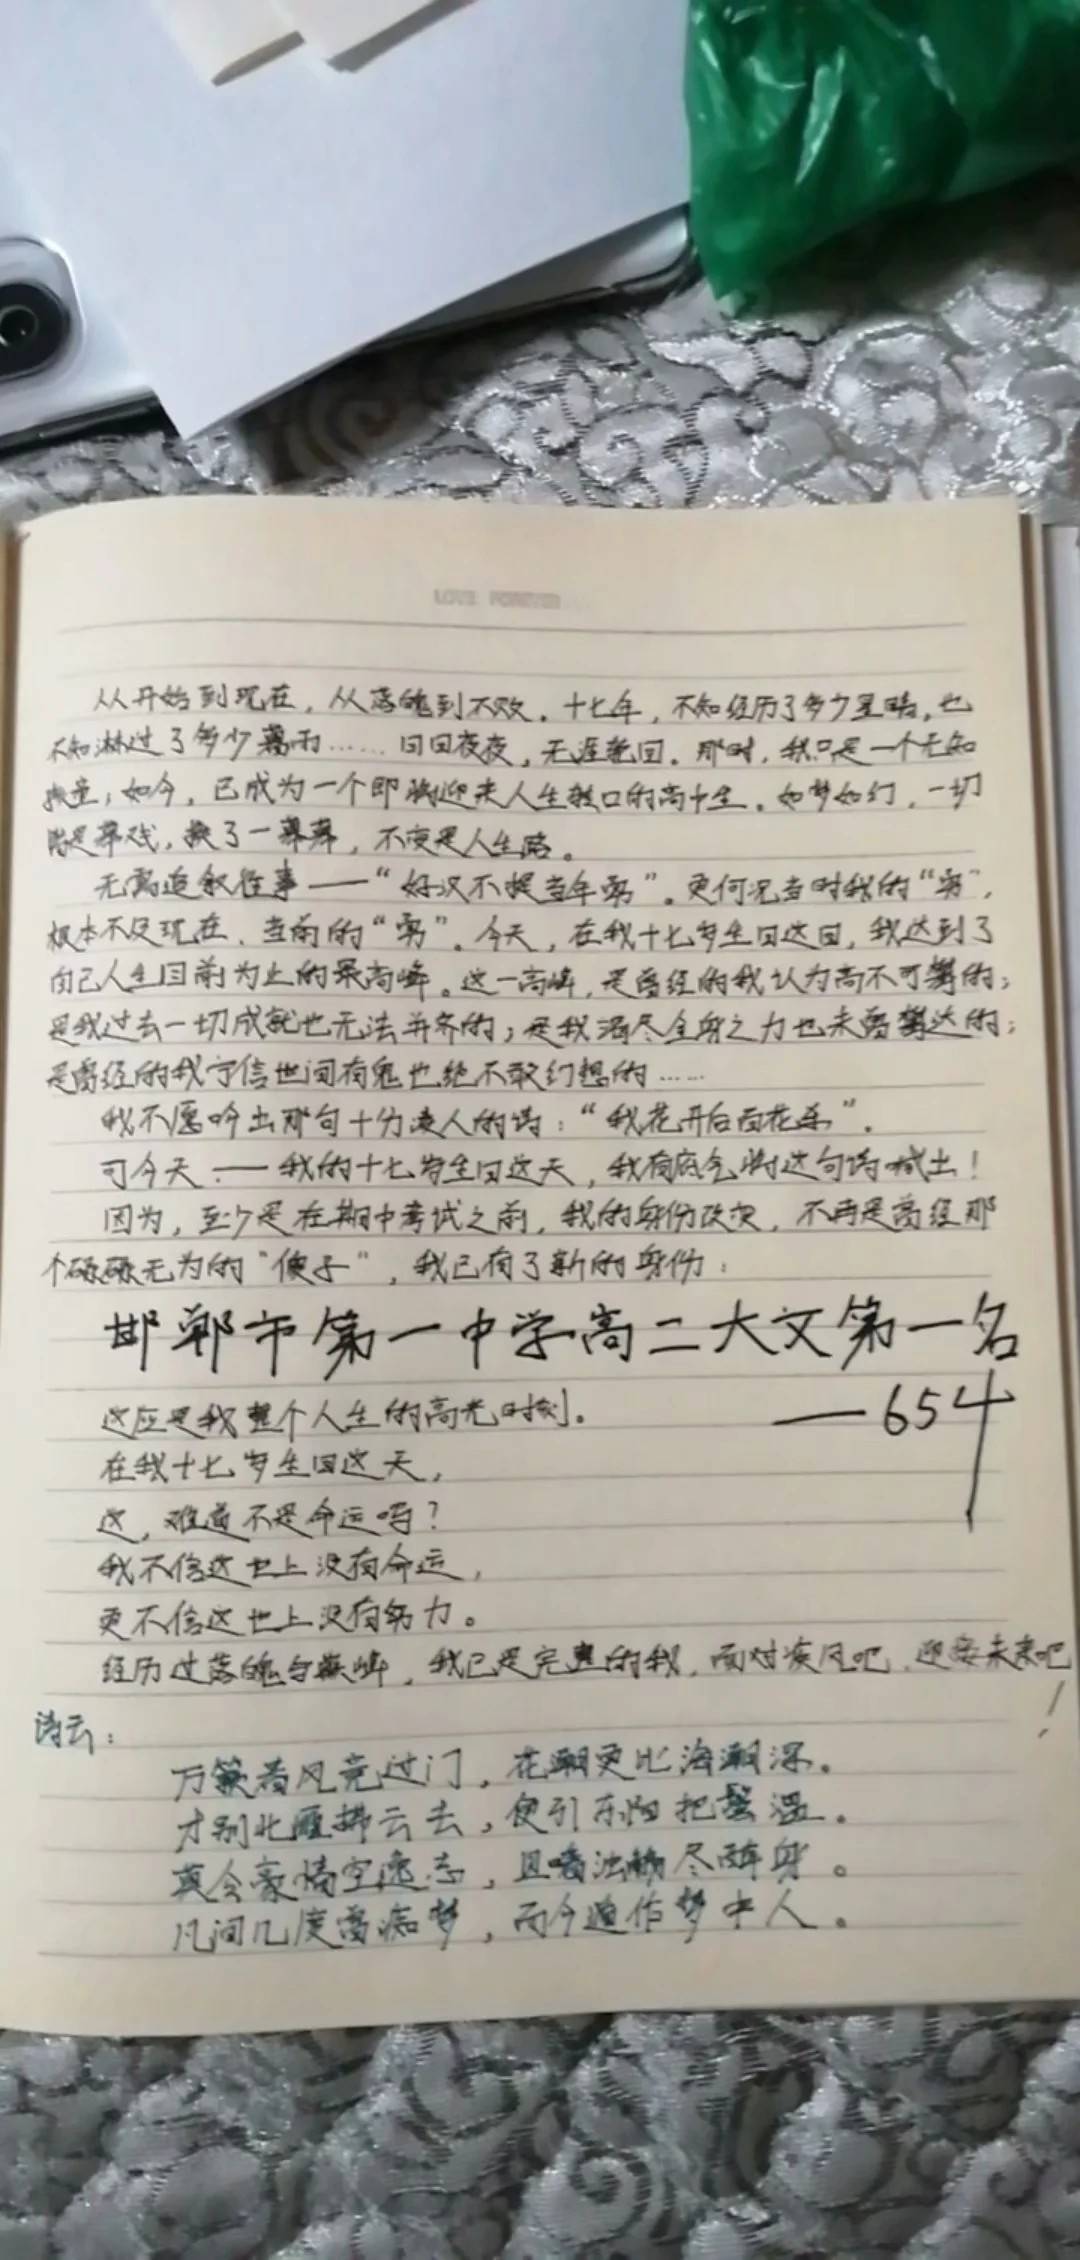 LOVE FOREVER
从开始到现在，从落魄到不败。十七年，不知经历了多少星晴，也
不知淋过了多少暮雨……日日夜夜，无涯轮回。那时，我只是一个无知
孩童；如今，已成为一个即将迎来人生转口的高中生。如梦如幻，一切
皆是幕戏，换了一幕幕，不变是人生路。
无需追叙往事——“好汉不提当年勇”。更何况当时我的“勇”，
根本不及现在、当前的“勇”。今天，在我十七岁生日这日，我达到了
自己人生目前为止的最高峰。这一高峰，是曾经的我认为高不可攀的；
是我过去一切成就也无法并齐的；是我竭尽全身之力也未曾攀达的；
是曾经的我宁信世间有鬼也绝不敢幻想的……
我不愿吟出那句十分凌人的诗：“我花开后百花杀”。
可今天——我的十七岁生日这天，我有底气将这句诗喊出！
因为，至少是在期中考试之前，我的身份改变，不再是曾经那
个碌碌无为的“傻子”，我已有了新的身份：
邯郸市第一中学高二大文第一名
——654
这应是我整个人生的高光时刻。
在我十七岁生日这天，
这，难道不是命运吗？
我不信这世上没有命运，
更不信这世上没有努力。
经历过落魄与巅峰，我已是完整的我，面对疾风吧，迎接未来吧！
诗云：
万簌着风竞过门，花潮更比海潮深。
才别北雁拂云去，便引东阳把鬓温。
莫令豪情空逸志，且嗜浊觞尽醉身。
凡间几度曾痴梦，而今造作梦中人。